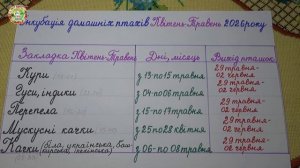 Інкубація домашніх птахів Квітень-Травень 2026 року
Закладка Квітень-Травень Дні, місяць Вихід пташок
Кури з 13 по 15 травня 29 травня-02 червня
Гуси, індики з 04 по 06 травня 29 травня-02 червня
Перепела з 15 по 17 травня 29 травня-02 червня
Мускусні качки з 25 по 28 квітня 29 травня-02 червня
Качки (біла, українська, баш
кирська, пекінська) з 06-по 08 травня 29 травня-02 червня